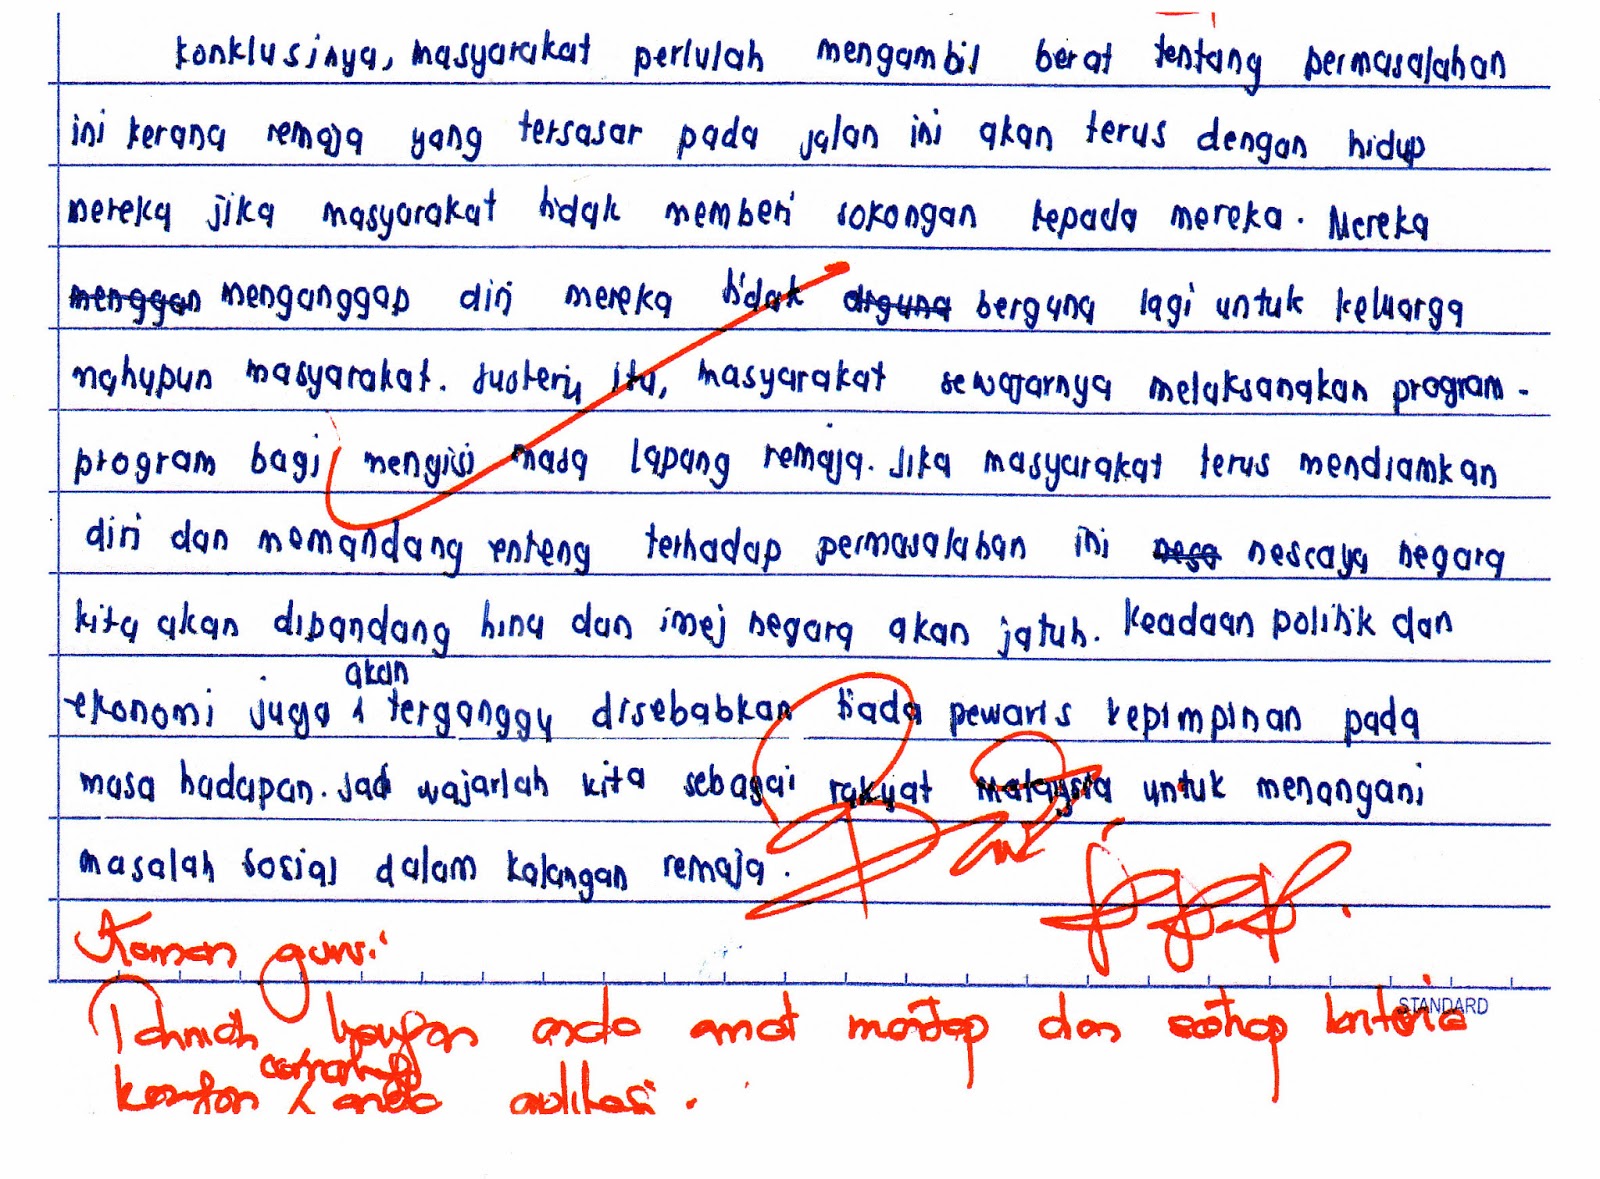 konklusinya, masyarakat perlulah mengambil berat tentang permasalahan
ini kerana remaja yang tersasar pada jalan ini akan terus dengan hidup
mereka jika masyarakat tidak memberi sokongan kepada mereka. Mereka
menggan menganggap diri mereka tidak diguna berguna lagi untuk keluarga
mahupun masyarakat. Justeru itu, masyarakat sewajarnya melaksanakan program-
program bagi mengisi masa lapang remaja. Jika masyarakat terus mendiamkan
diri dan memandang enteng terhadap permasalahan ini nesc nescaya negara
kita akan dipandang hina dan imej negara akan jatuh. Keadaan politik dan
akan
ekonomi juga terganggu disebabkan tiada pewaris kepimpinan pada
masa hadapan. Jadi wajarlah kita sebagai rakyat malaysia untuk menangani
masalah sosial dalam kalangan remaja.
Komen guru:
STANDARD
Tahniah karangan anda amat mantap dan setiap kriteria
karangan anda aplikasi.